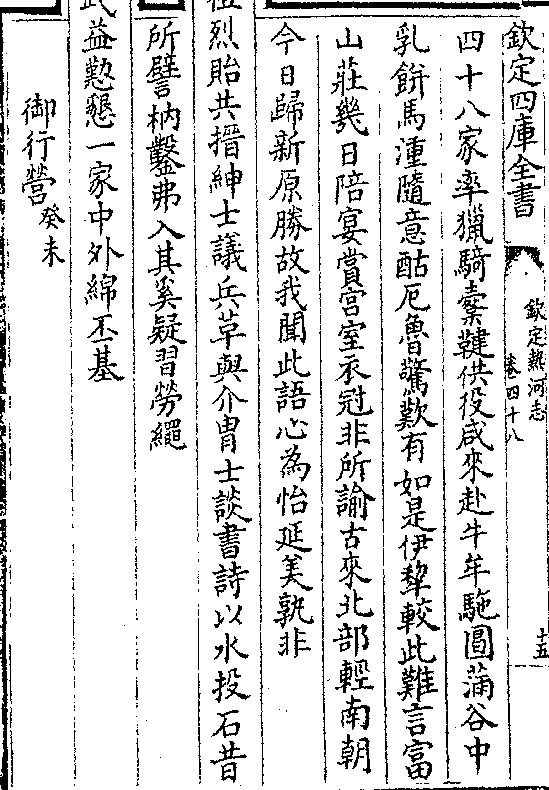 欽定四庫全書
欽定熱河志
卷四十八
十五
四十八家率獵騎櫜鞬供役咸來赴牛羊駞圂蒲谷中
乳餅馬湩隨意酤厄魯驚歎有如是伊犂較此難言富
山莊幾日陪宴賞宫室衣冠非所諭古來北部輕南朝
今日歸新原勝故我聞此語心為怡延美孰非
烈貽共搢紳士議兵革與介胄士談書詩以水投石昔
所譬枘鑿弗入其奚疑習勞繩
武益懃懇一家中外綿丕基
御行營癸未